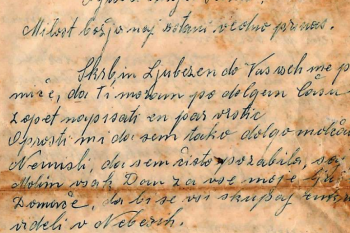 Milost božjo naj ostani vedno pri nas.
Skrb in Ljubezen do Vas vseh me p
niče, da Ti moram po dolgem času
zopet napisati en par vrstic
Oprosti mi da sem tako dolgo molčala
Nemisli, da sem čisto pozabila, saj
Molim vsak Dan za vse moje
Domače, da bi se vsi skupaj
videli v Nebesih.